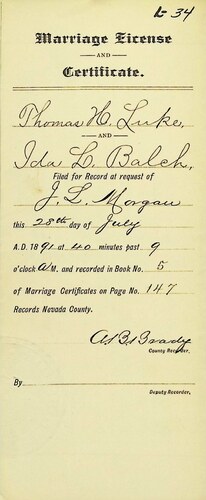 34
Marriage License
AND
Certificate.
Thomas H. Luke,
AND
Ida L. Balch,
Filed for Record at request of
J. L. Morgan
this 28th day of July
A.D. 1891 at 40 minutes past 9
o'clock A.M. and recorded in Book No. 5
of Marriage Certificates on Page No. 147
Records Nevada County.
A. B. Brady
County Recorder,
By
Deputy Recorder,